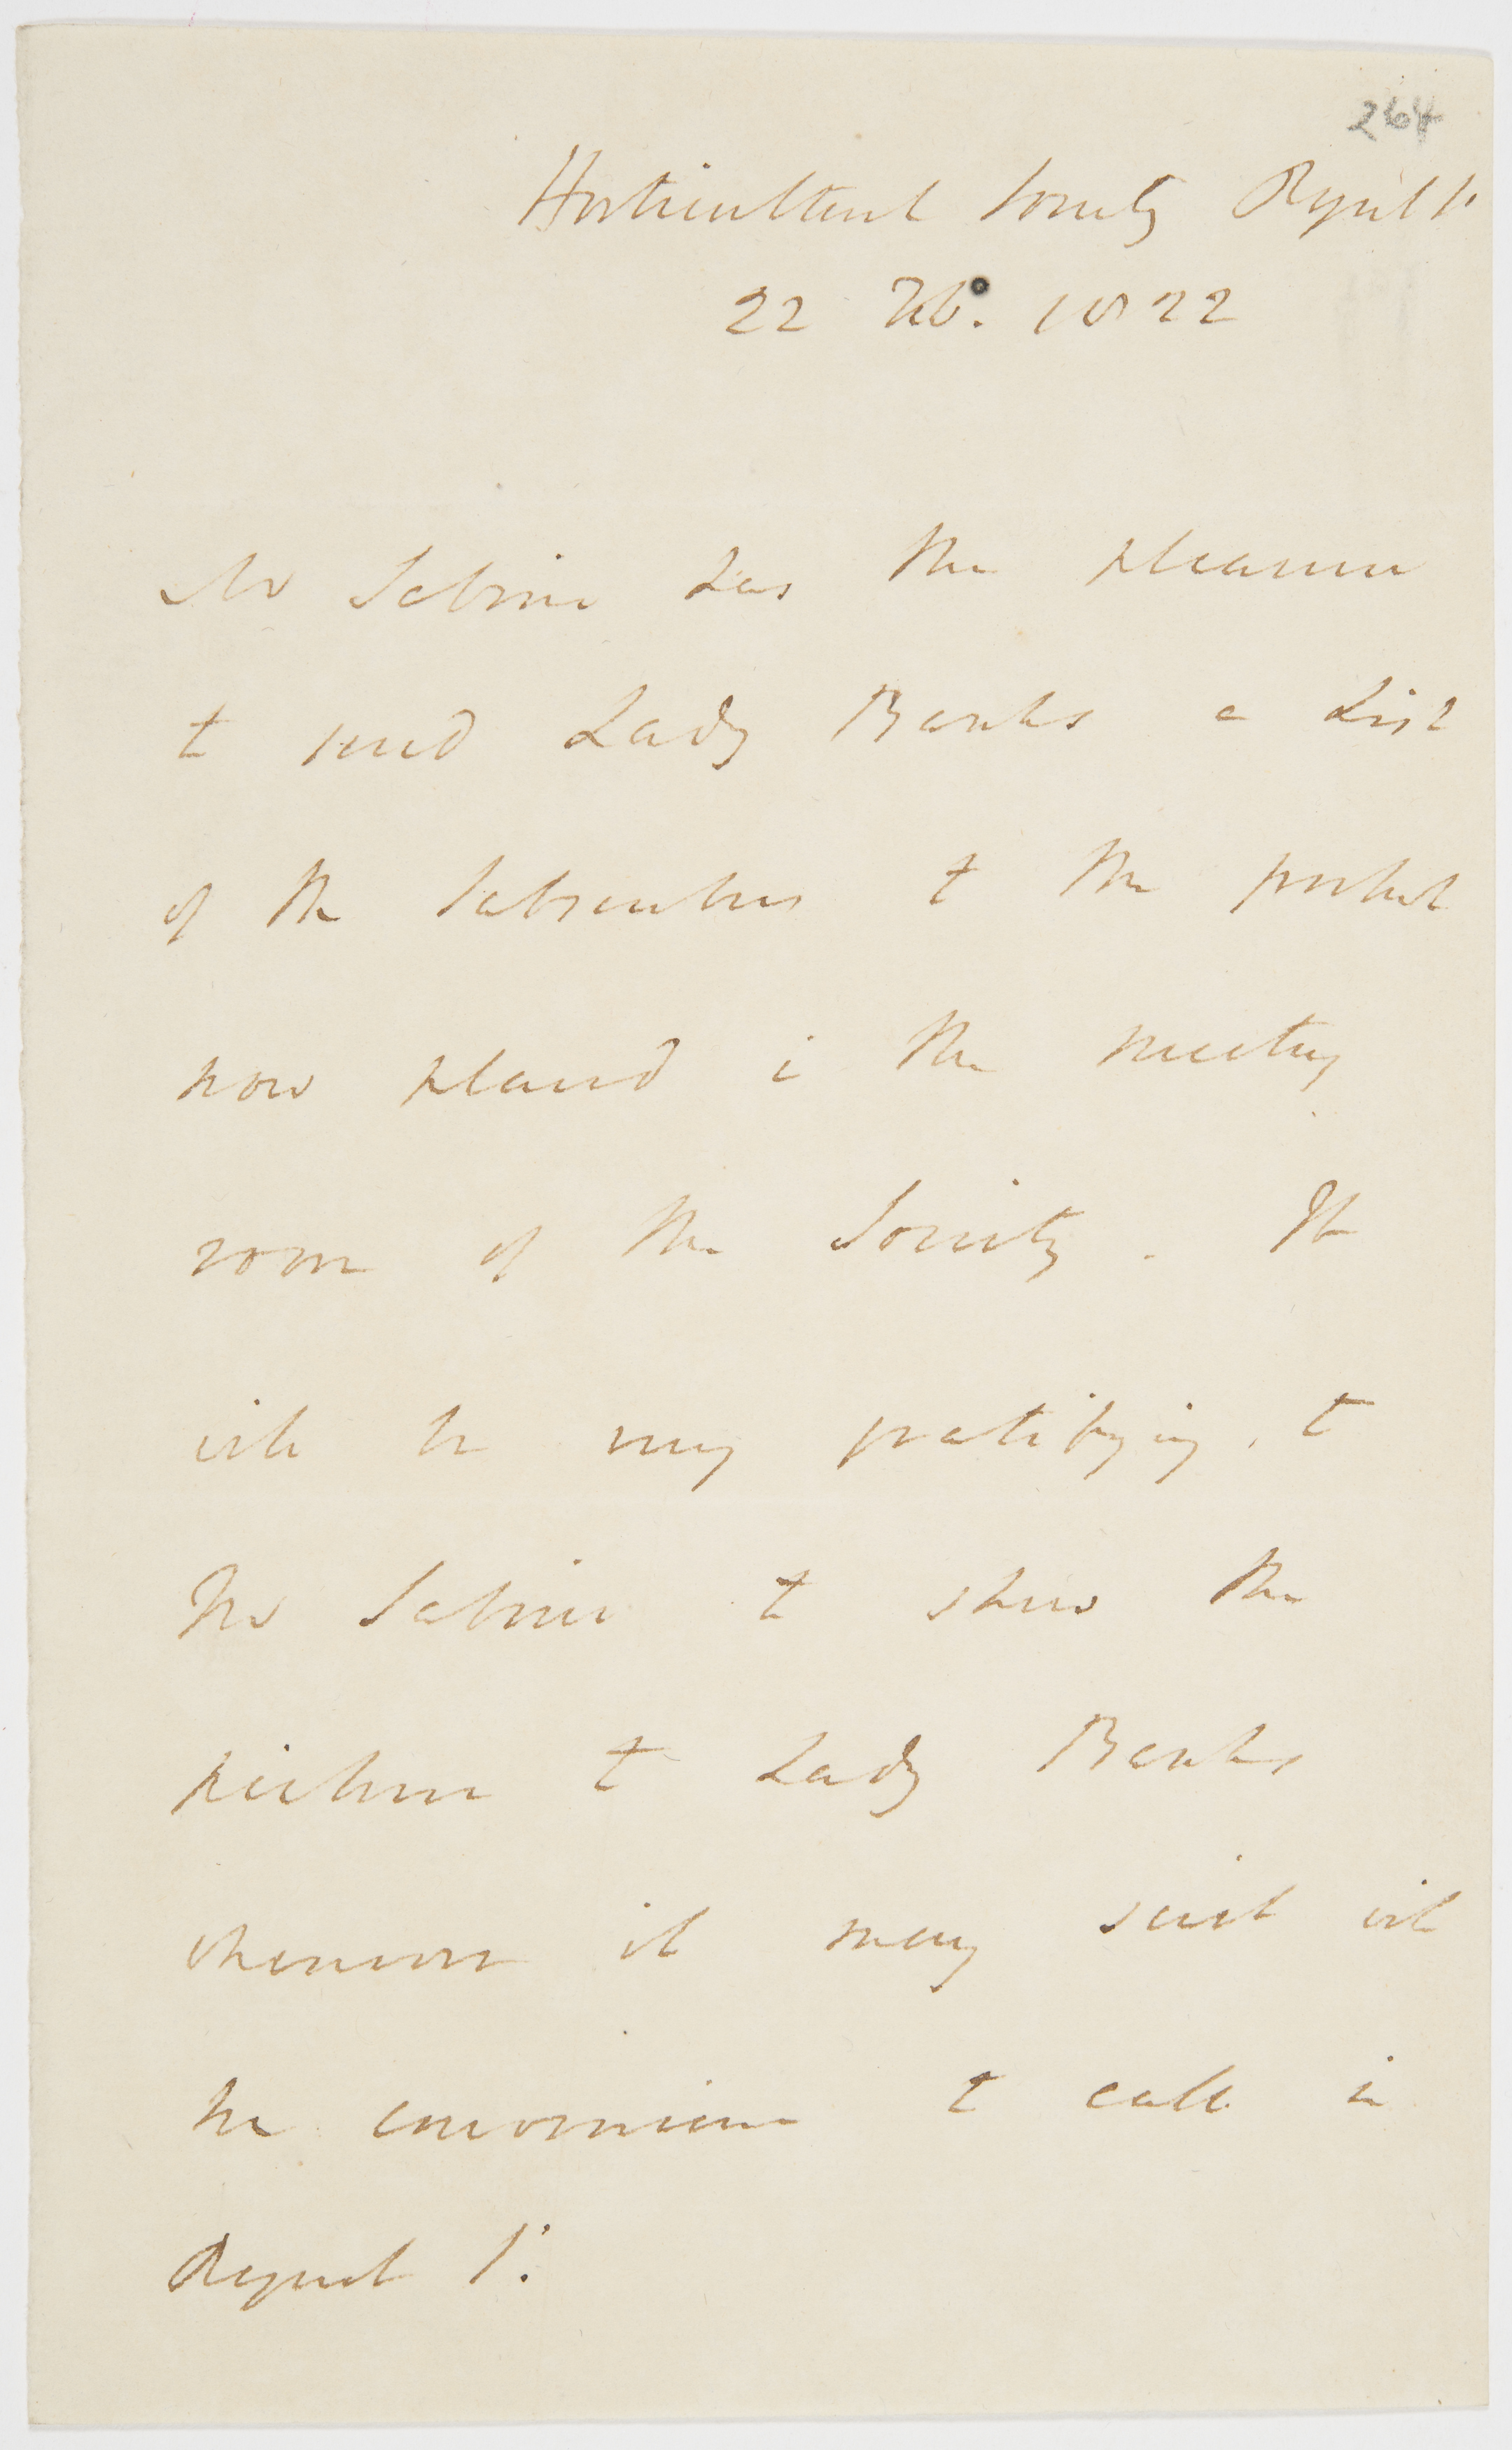 264
Horticultural Society Regent St
22 Feb. 1822
Mr Sabine has the pleasure
to send Lady Banks a List
of the Subscribers to the portrait
now placed in the meeting
room of the Society. It
will be very gratifying to
Mr Sabine to shew the
picture to Lady Banks
whenever it may suit with
her convenience to call in
Regent St.